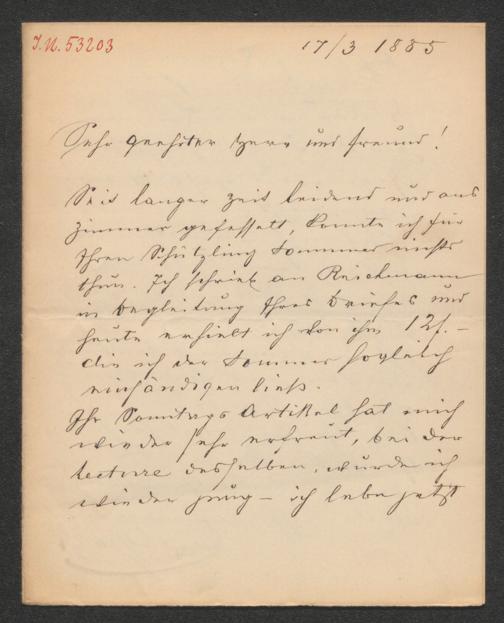 J.N. 53203
17/3 1885
Sehr geehrter Herr und Freund!
Seit langer Zeit leidend und ans
Zimmer gefesselt, konnte ich für
Ihren Schützling Sommer nichts
thun. Ich schrieb an Reichmann
in Begleitung Ihres Briefes und
heute erhielt ich von ihm 12f. –
die ich der Sommer sogleich
einhändigen ließ.
Ihr Sonntags Artikel hat mich
wieder sehr erfreut, bei der
Lecture desselben, wurde ich
wieder jung – ich lebe jetzt